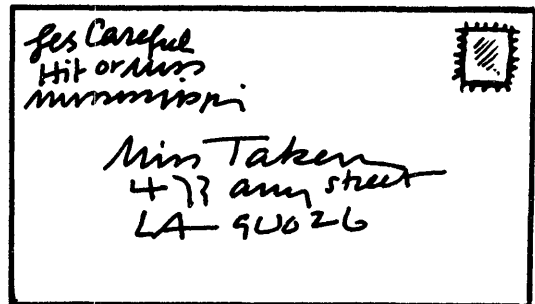 Les Careful
Hit or Miss
Mississippi
Miss Taken
473 any street
LA 90026